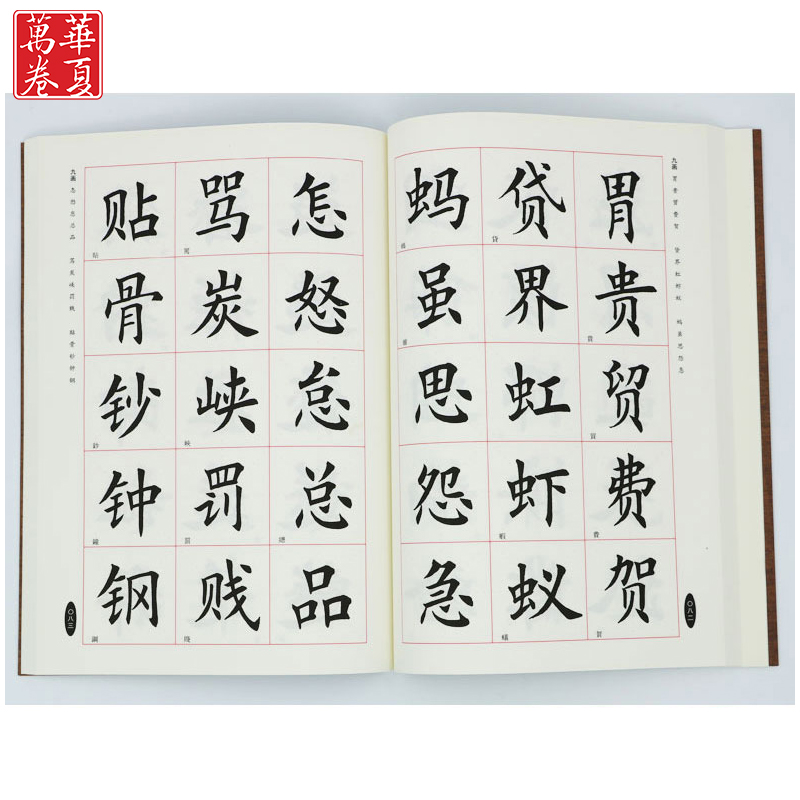 華夏
萬卷
九画 胃贵贸费贺 贷界虹虾蚁 蚂虽思怨急
〇八二
胃贵贸费贺
貴 貿 費 賀
贷界虹虾蚁
貸 蝦 蟻
蚂虽思怨急
螞 雖
九画 怎怒怠总品 骂炭峡罚贱 贴骨钞钟钢
〇八三
怎怒怠总品
總
骂炭峡罚贱
罵 峽 罰 賤
贴骨钞钟钢
貼 鈔 鐘 鋼